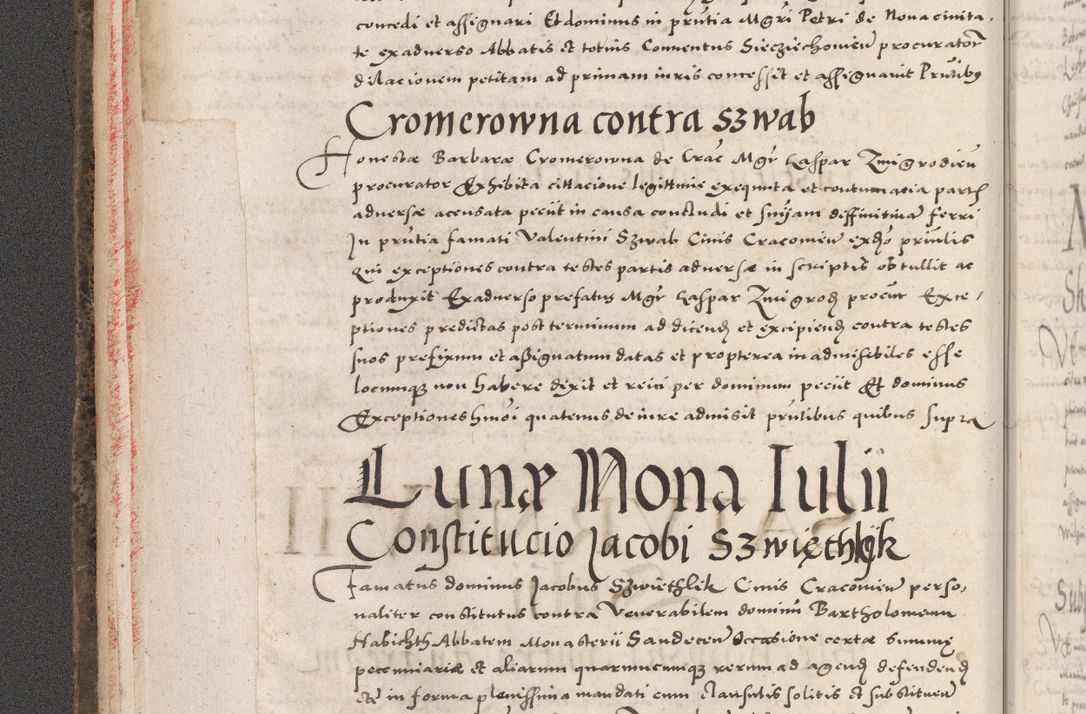 concedi et assignari Et dominus in prntia Mgri Petri de Nova civita-
te ex adverso Abbatis et totius Conventus Sieciechovien procuratori
dilacionem petitam ad primam iuris concessit et assignavit Prntibus
Cromerowna contra Szwab
Honestæ Barbaræ Cromerowna de Crac Mgr Caspar Zmigrodien
procurator Exhibita cittacione legittime exequuta et contumacia partis
adversæ accusata peciit in causa concludi et sniam diffinitivam ferri
In prntia famati Valentini Szwab Civis Cracovien
Qui exceptiones contra testes partis adversæ in scriptis obtullit ac
produxit Ex adverso prefatus Mgr Caspar Zmigrod procur Exce-
ptiones predictas post terminum ad dicend et excipiend contra testes
suos prefixum et assignatum datas et propterea inadmisibiles esse
locumque non habere dixit et reici per dominum peciit Et dominus
Exceptiones hmoi quatenus de iure admisit prntibus quibus supra
Lunæ Nona Iulii
Constitucio Jacobi Szwięthlik
Famatus dominus Jacobus Szwiethlik Civis Cracovien perso-
naliter constitutus contra Venerabilem dominum Bartholomeum
Habichth Abbatem Monasterii Sandecen Occasione certæ summæ
pecuniariæ et aliarum quarumcumque rerum ad agend defendend
etc in forma plenissima mandati cum clausulis solitis et substituen